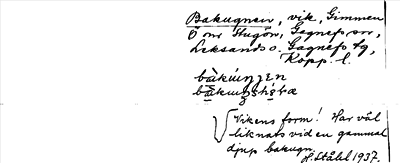 Bakugnen, vik, Gimmen
Ö om Hugön, Gagnefs sn,
Leksands o. Gagnefs tg,
Kopp. l.
Vikens form! Har väl
liknats vid en gammal
djup bakugn.
H. Ståhl 1937.